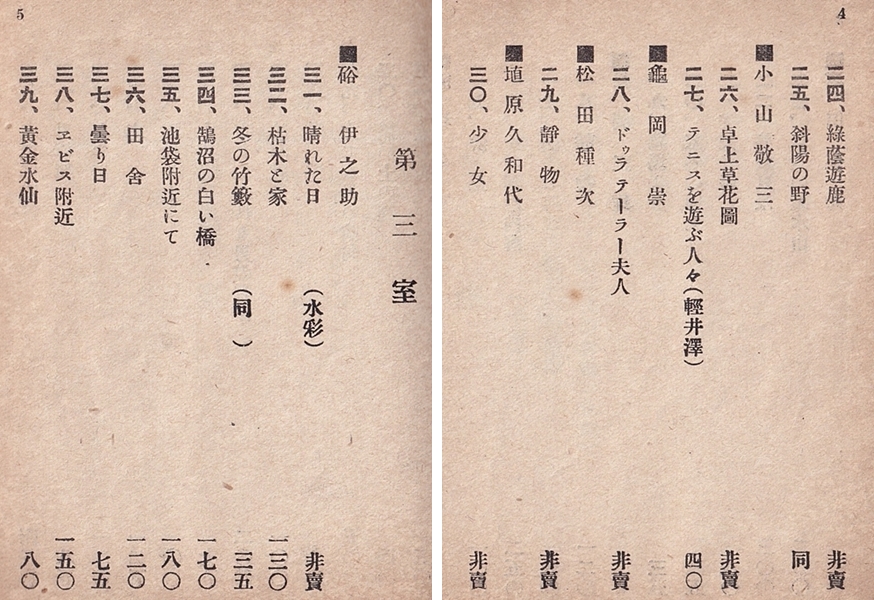 4
二四、綠蔭遊鹿 非賣
二五、斜陽の野 同
■小山敬三
二六、卓上草花圖 非賣
二七、テニスを遊ぶ人々(輕井澤) 四〇
■龜岡崇
二八、ドゥラテーラー夫人 非賣
■松田種次
二九、靜物 非賣
■埴原久和代
三〇、少女 非賣
5
第三室
■硲伊之助
三一、晴れた日 (水彩) 非賣
三二、枯木と家 一三〇
三三、冬の竹籔 (同) 三五
三四、鵠沼の白い橋 一七〇
三五、池袋附近にて 一八〇
三六、田舍 一二〇
三七、曇り日 七五
三八、ヱビス附近 一五〇
三九、黃金水仙 八〇